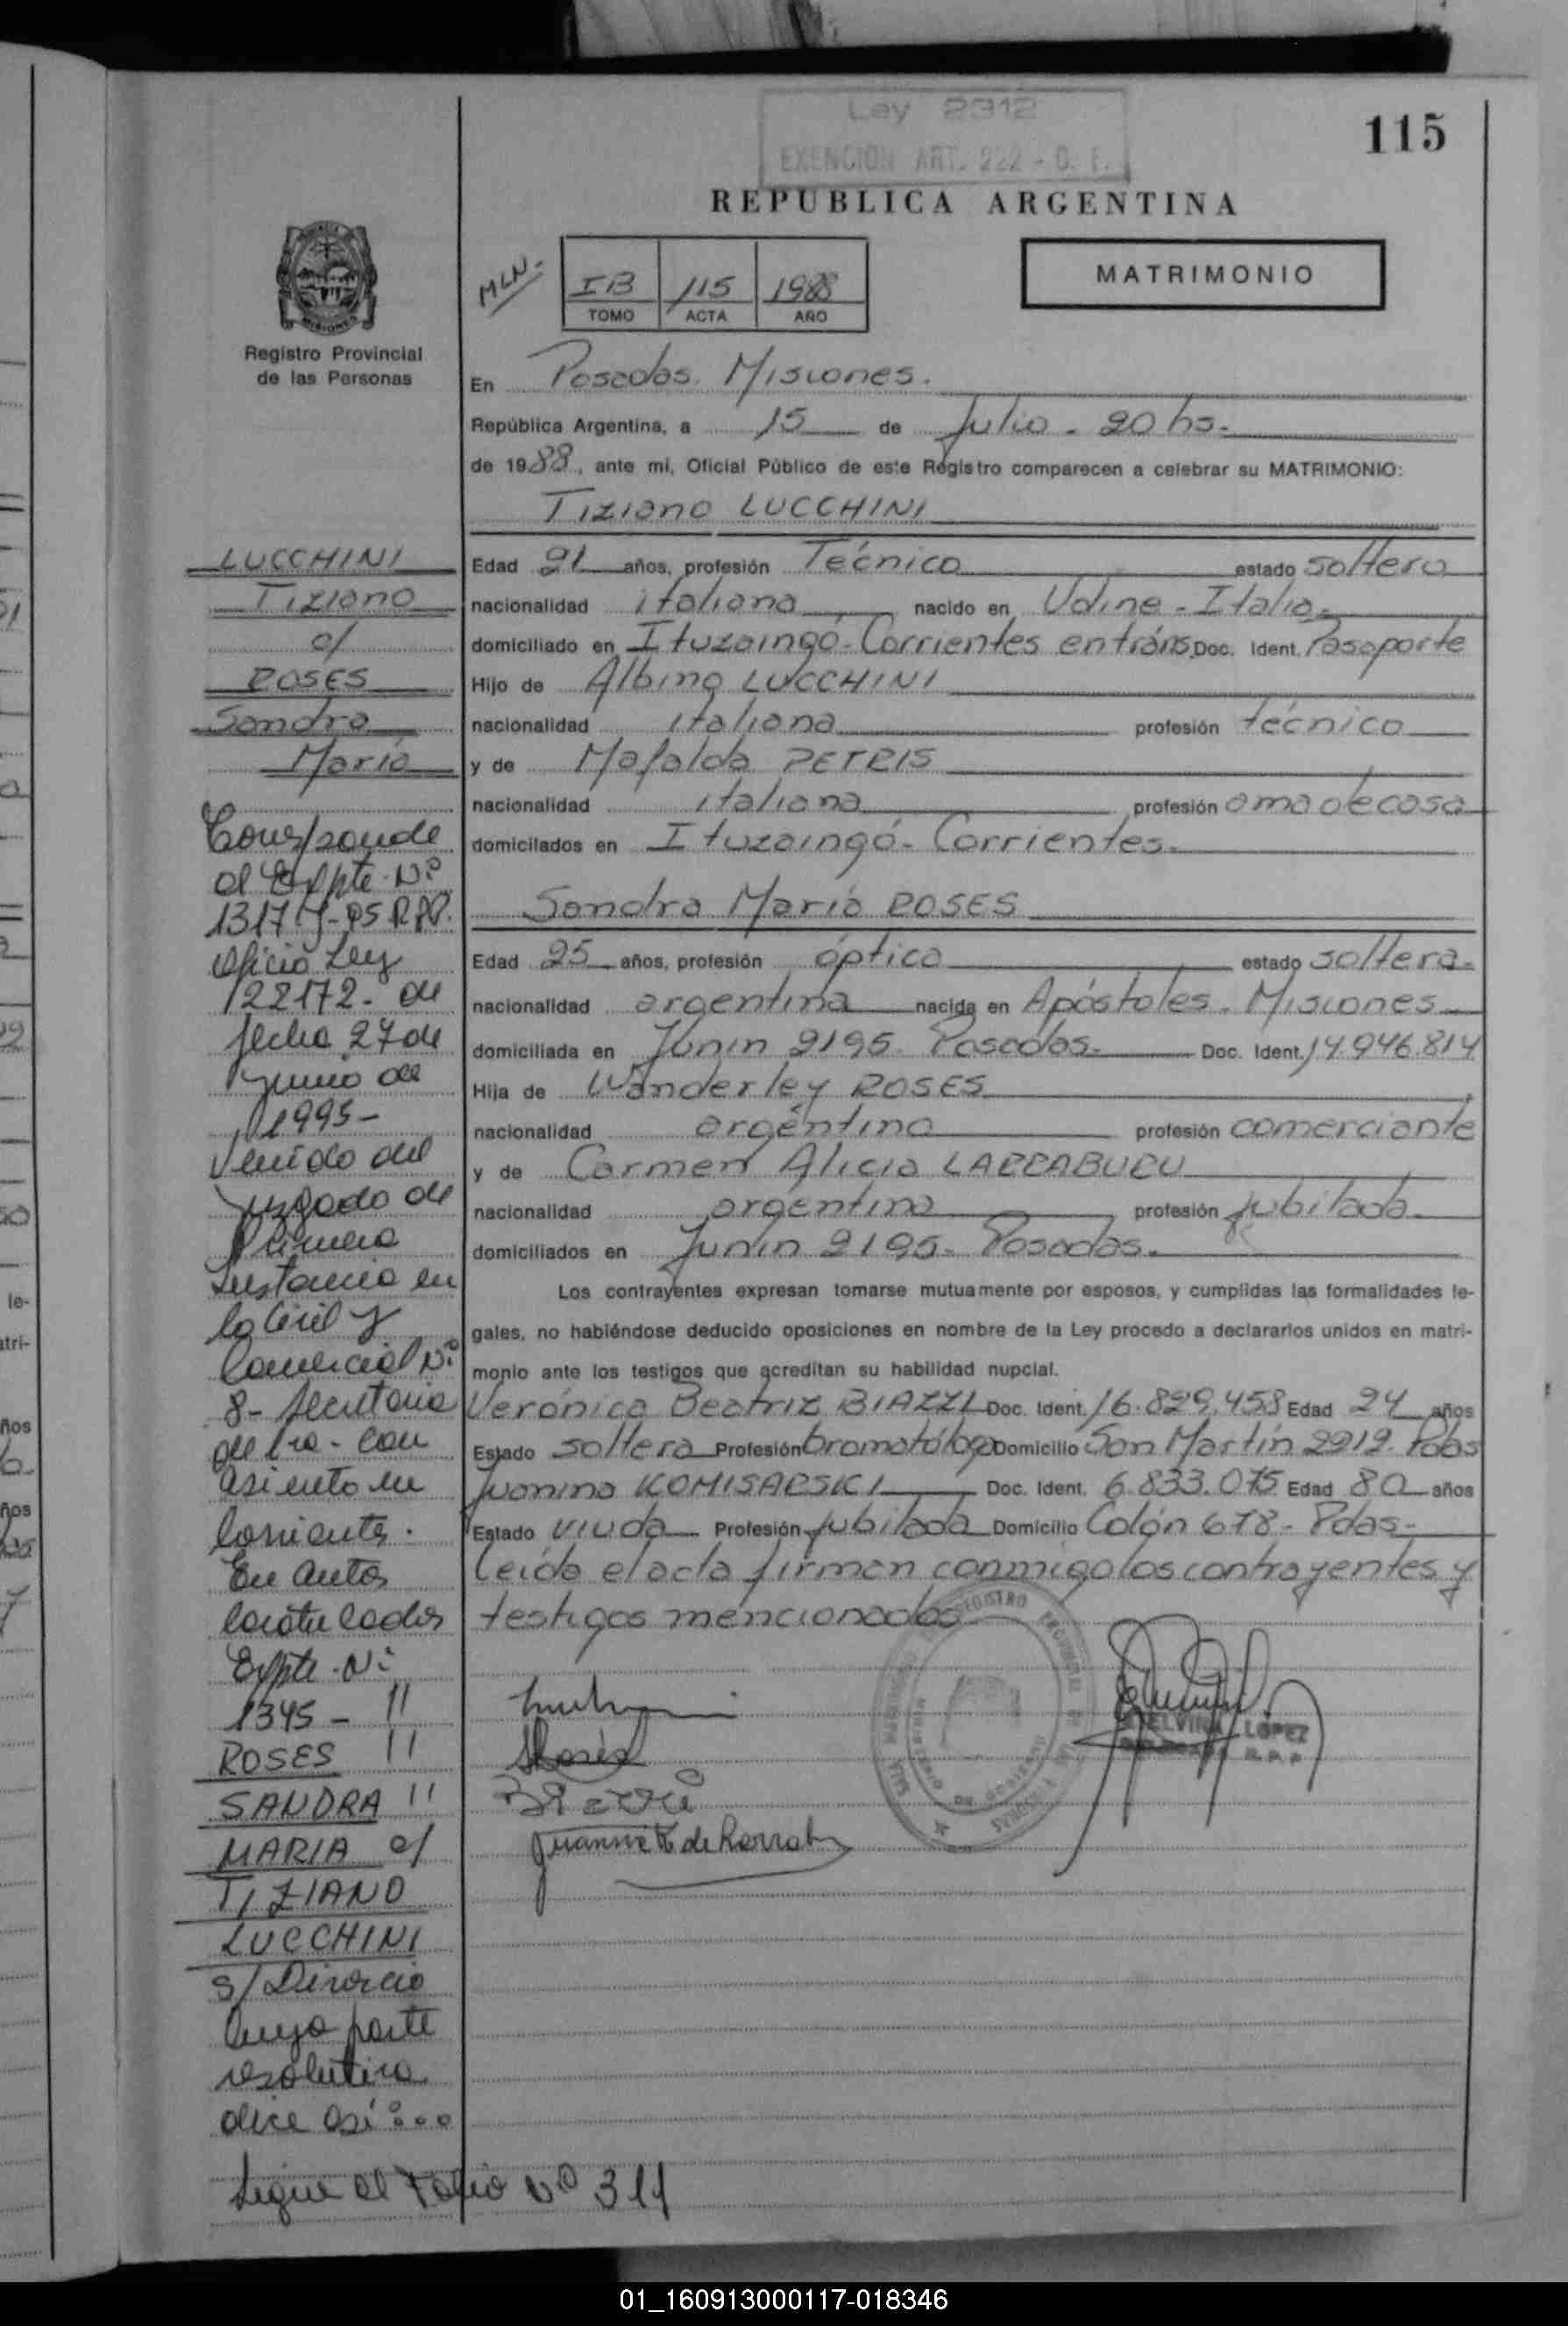 Ley 2312
EXENCION ART. 222 - C. F.
115
REPUBLICA ARGENTINA
MLN.
IB 115 1988
TOMO ACTA AÑO
MATRIMONIO
MISIONES
Registro Provincial
de las Personas
En Posadas. Misiones.
República Argentina, a 15 de Julio. 20 hs.
de 1988, ante mi, Oficial Público de este Registro comparecen a celebrar su MATRIMONIO:
Tiziano LUCCHINI
Edad 21 años, profesión Técnico estado soltero
nacionalidad italiana nacido en Udine - Italia.
domiciliado en Ituzaingó - Corrientes en tráns. Doc. Ident. Pasaporte
Hijo de Albino LUCCHINI
nacionalidad italiana profesión técnico
y de Mafalda PETRIS
nacionalidad italiana profesión ama de casa
domicilados en Ituzaingó - Corrientes.
Sandra María ROSES
Edad 25 años, profesión óptica estado soltera.
nacionalidad argentina nacida en Apóstoles. Misiones
domiciliada en Junín 2195. Posadas. Doc. Ident. 14.946.814
Hija de Wanderley ROSES
nacionalidad argentina profesión comerciante
y de Carmen Alicia LARRABURU
nacionalidad argentina profesión jubilada
domiciliados en Junín 2195. Posadas.
Los contrayentes expresan tomarse mutuamente por esposos, y cumplidas las formalidades le-
gales, no habiéndose deducido oposiciones en nombre de la Ley procedo a declararlos unidos en matri-
monio ante los testigos que acreditan su habilidad nupcial.
Verónica Beatriz BIAZZI Doc. Ident. 16.829.458 Edad 24 años
Estado soltera Profesión bromatóloga Domicilio San Martín 2212. Pdas
Juanina KOMISARSKI Doc. Ident. 6.833.075 Edad 80 años
Estado viuda Profesión jubilada Domicilio Colón 678 - Pdas -
Leída el acta firman conmigo los contrayentes y
testigos mencionados
ELVIRA LOPEZ
R. P. P.
LUCCHINI
Tiziano
c/
ROSES
Sandra
María
Corresponde
al Expte. Nº
1317 - 95 R.P.P.
Oficio Ley
22172 - de
fecha 27 de
Junio de
1995 -
Venido del
Juzgado de
Primera
Instancia en
lo Civil y
Comercial Nº
8 - Secretaria
con
asiento en
Corrientes.
En autos
caratulados
Expte. Nº
1345 - "
ROSES "
SANDRA "
MARIA c/
TIZIANO
LUCCHINI
s/ Divorcio
Cuya parte
resolutiva
dice así: ...
Sigue al Folio Nº 311
01_160913000117-018346